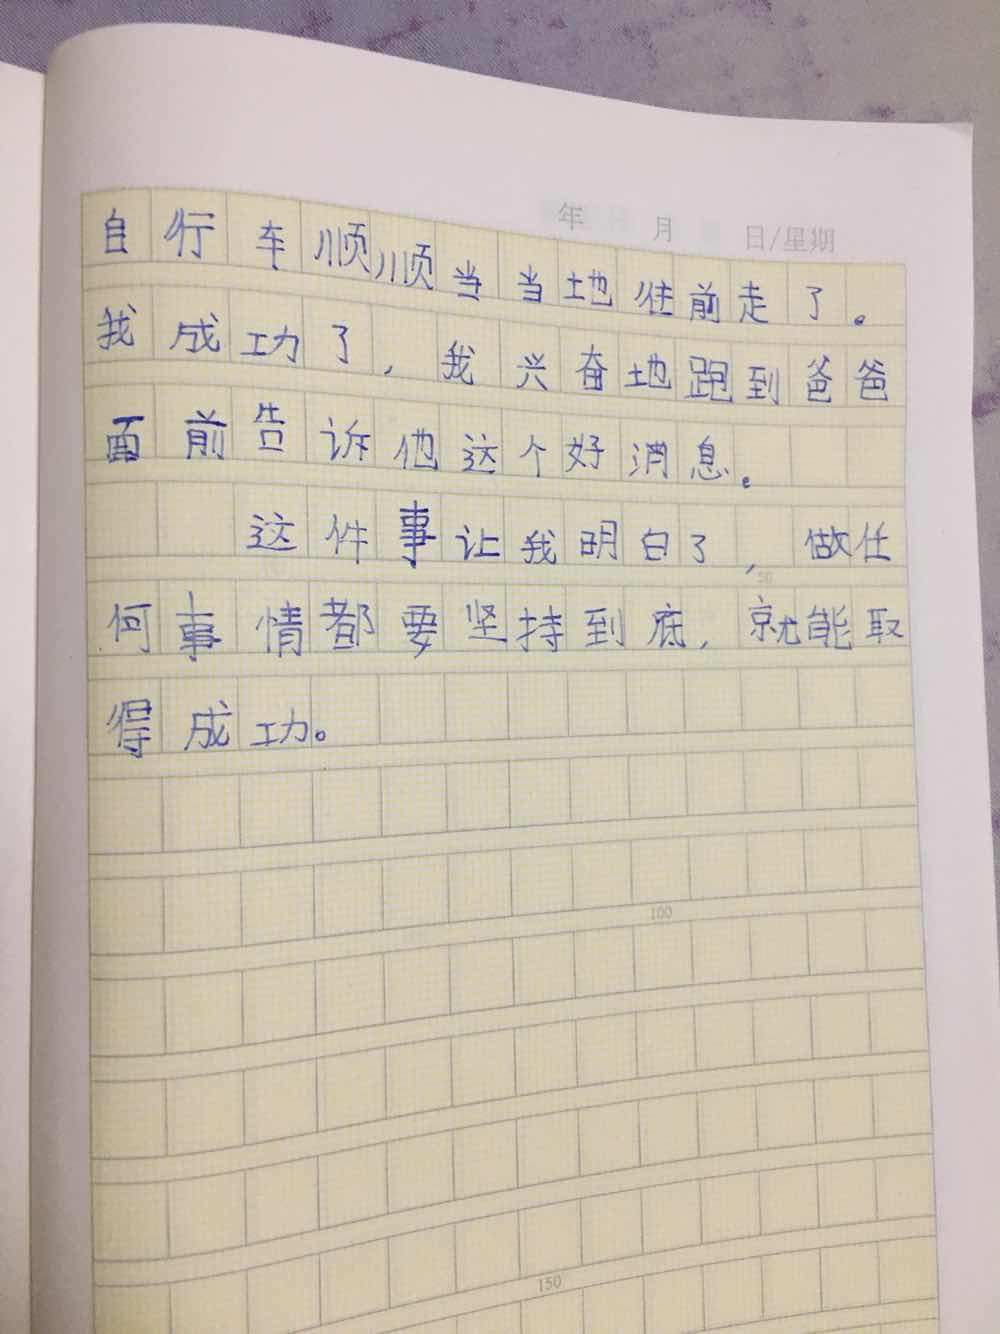 年 月 日/星期
自行车顺顺当当地往前走了。
我成功了，我兴奋地跑到爸爸
面前告诉他这个好消息。
这件事让我明白了，做任
50
何事情都要坚持到底，就能取
得成功。
100
150